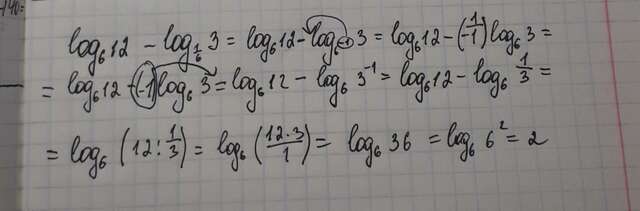 log₆12 − log_{1/6} 3 = log₆12 − log_{6^{-1}} 3 = log₆12 − (1/−1) log₆ 3 =
= log₆12 − (−1) log₆ 3 = log₆12 − log₆ 3⁻¹ = log₆12 − log₆ 1/3 =
= log₆ (12 : 1/3) = log₆ (12·3/1) = log₆ 36 = log₆ 6² = 2